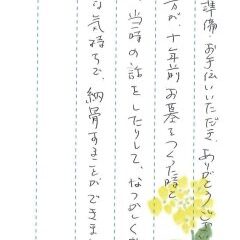 準備、お手伝いいただき、ありがとうござ
方が、十年前お墓をつくった時と
、当時の話をしたりして、なつかしく
な気持ちで、納骨することができまし